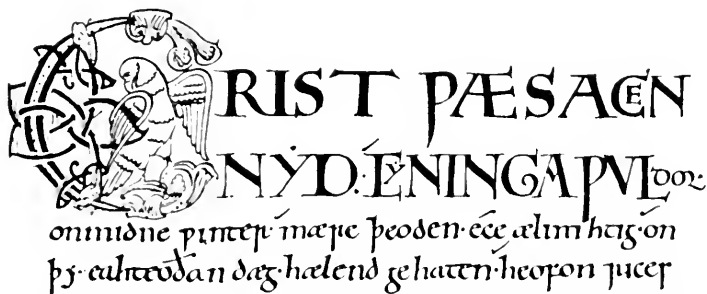 CRIST ǷÆS ACEN
NẎD· CẎNINGA ǷVLdor·
onmidne ƿinter· mære þeoden· éce ælmihtig· ón
þẏ· eahteoðan dæg· hælend gehaten· heofon rices